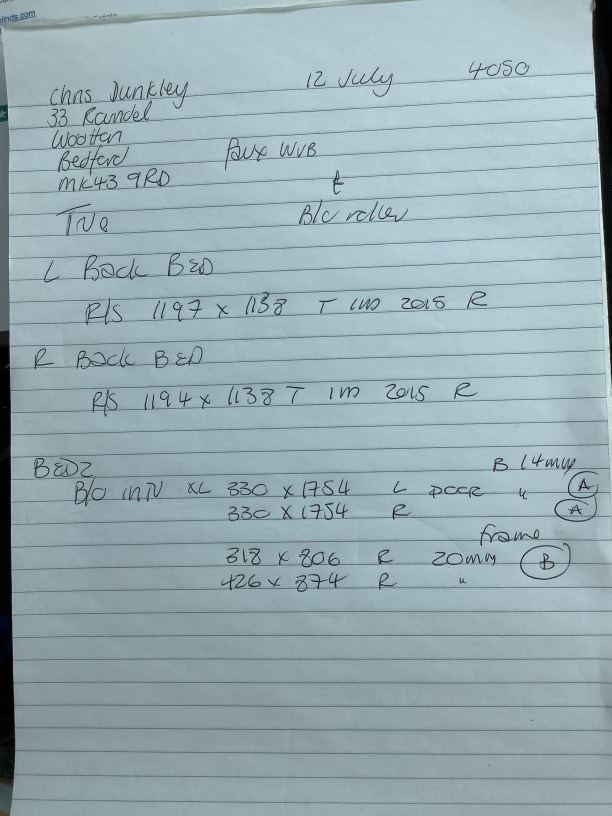 linds.com
Chris Dunkley 12 July 4050
33 Randel
Wootten
Bedford Faux WVB
MK43 9RD &
Tue B/O roller
L Back BED
R/S 1197 x 1138 T 1m 2015 R
R Back BED
R/S 1194 x 1138 T 1m 2015 R
BED2 B 14mm
B/O inTU XL 330 x 1754 L DOOR " A
330 x 1754 R A
frame
318 x 806 R 20mm B
426 x 874 R "